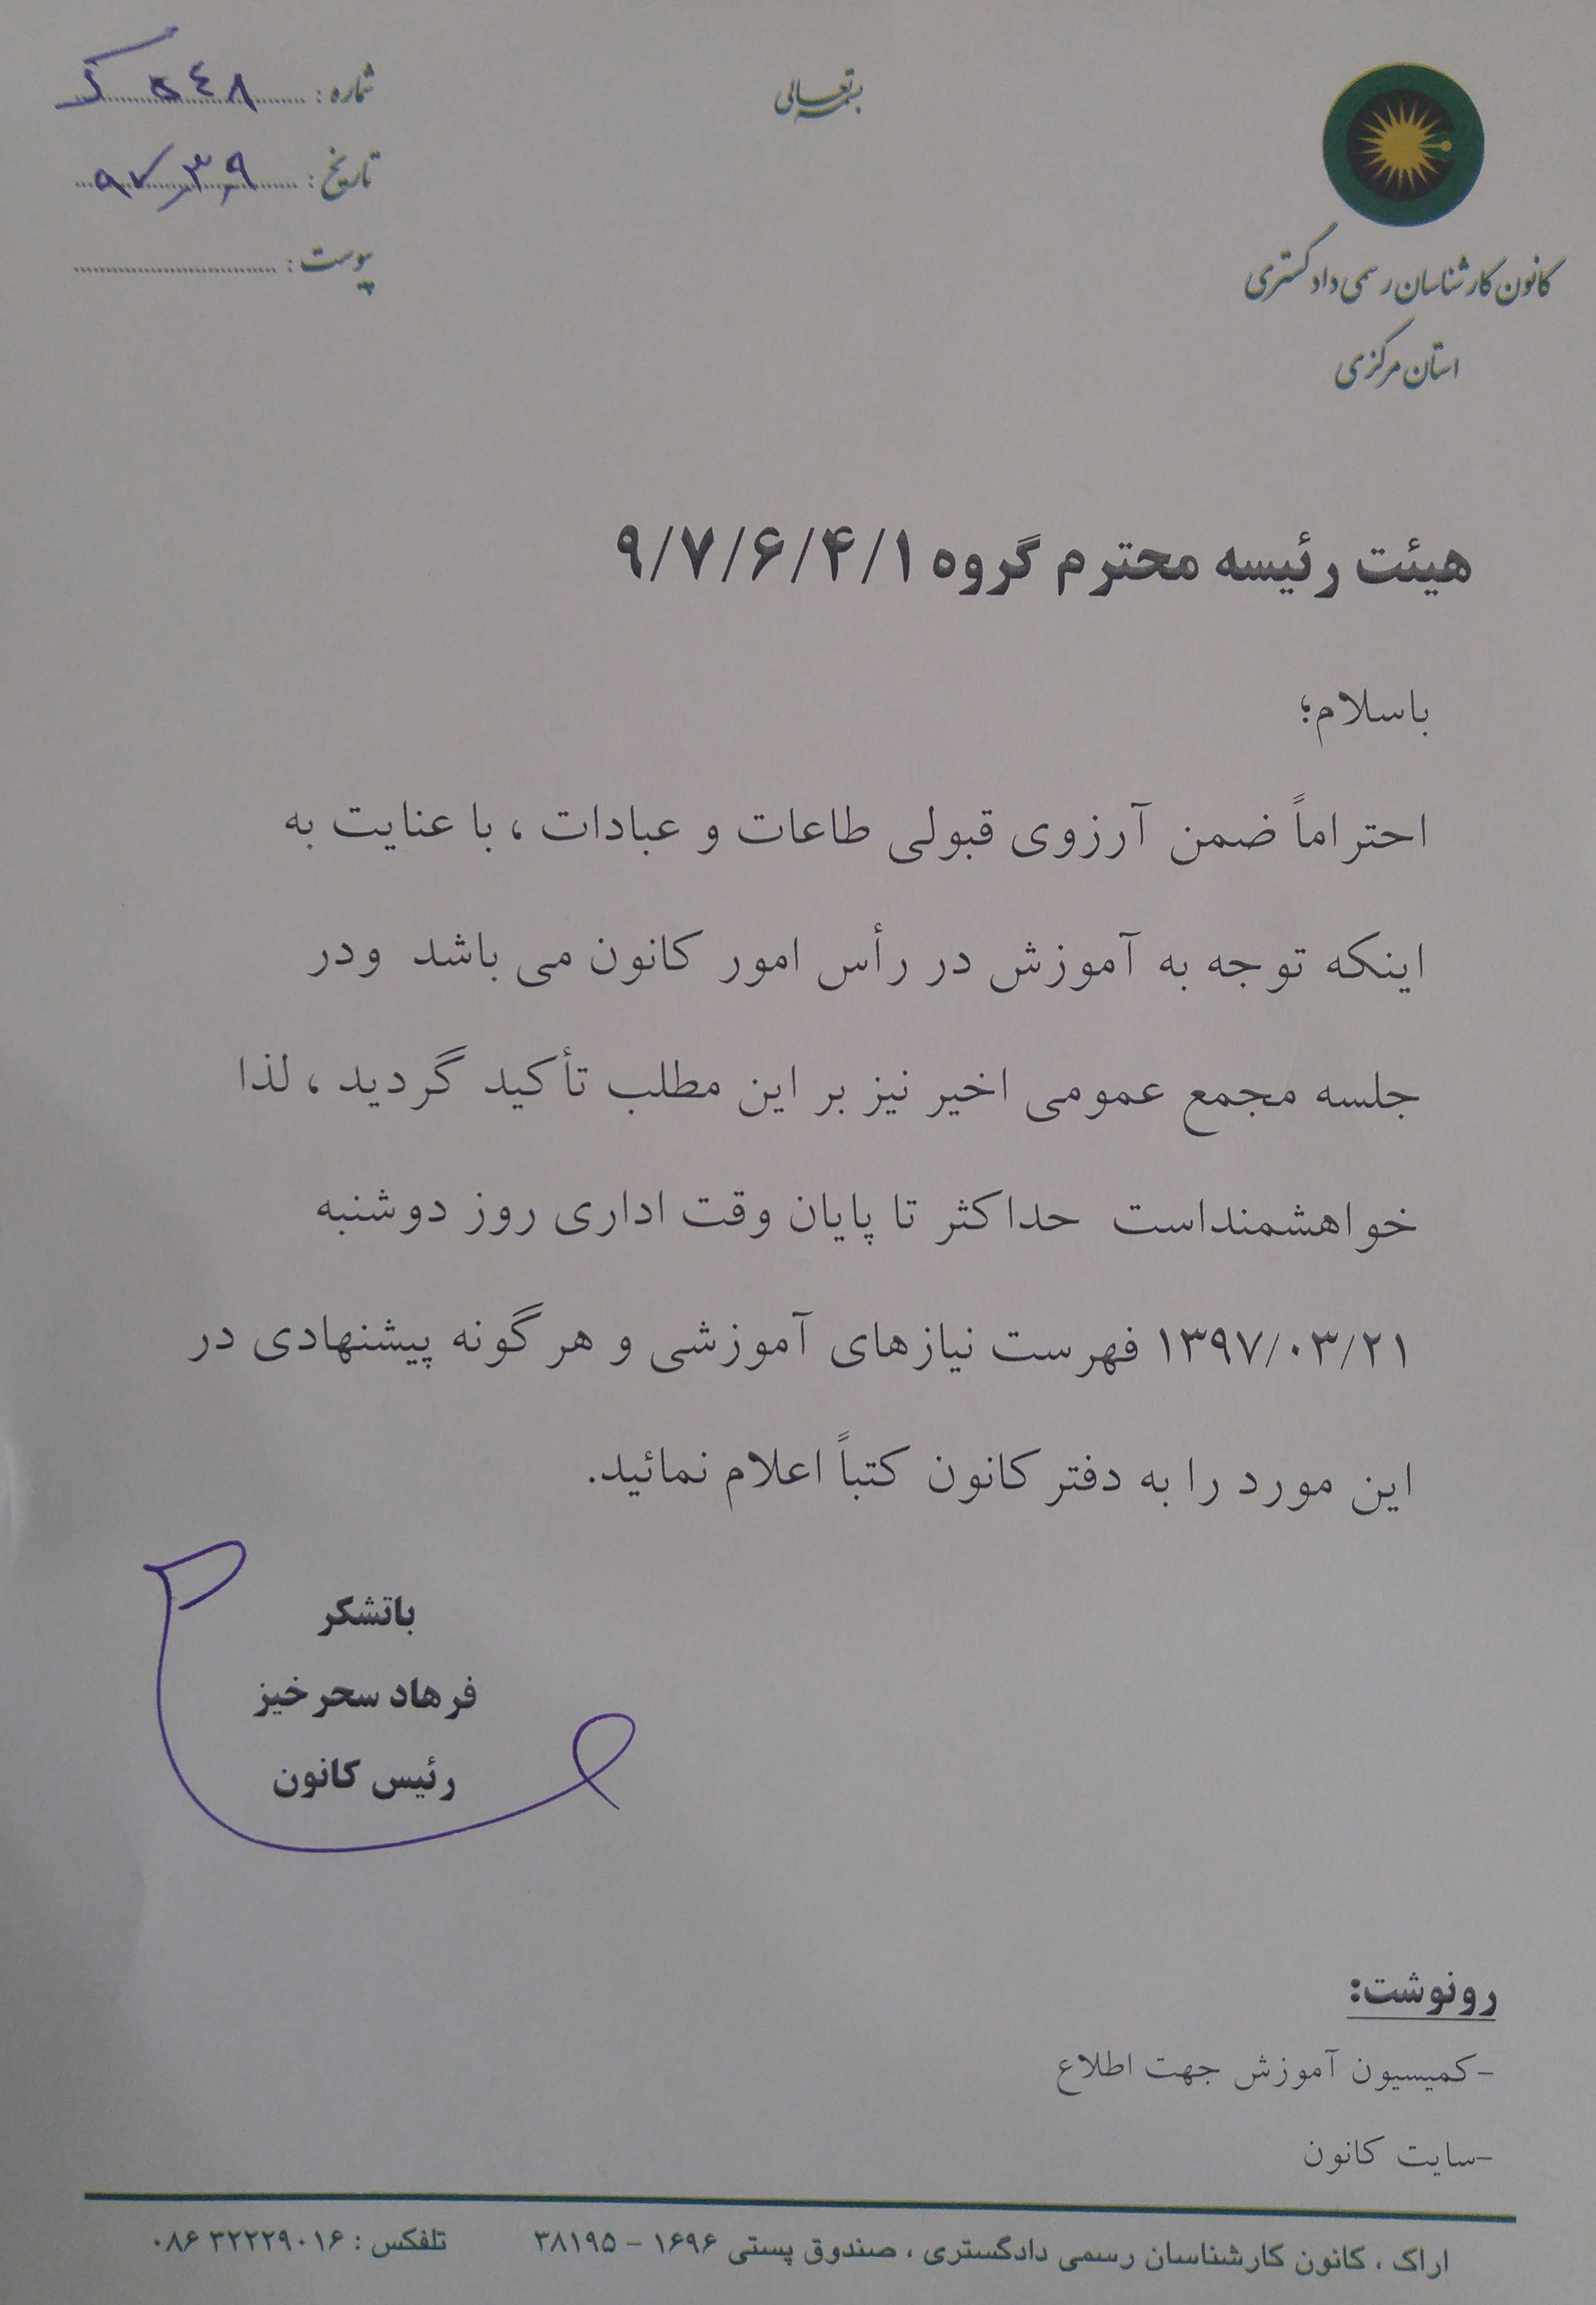 بسمه تعالی
کانون کارشناسان رسمی دادگستری
استان مرکزی
شماره : ۵۴۸ ک
تاریخ : ۹۷/۳/۹
پیوست :
هیئت رئیسه محترم گروه ۹/۷/۶/۴/۱
باسلام؛
احتراماً ضمن آرزوی قبولی طاعات و عبادات ، با عنایت به
اینکه توجه به آموزش در رأس امور کانون می باشد ودر
جلسه مجمع عمومی اخیر نیز بر این مطلب تأکید گردید ، لذا
خواهشمنداست حداکثر تا پایان وقت اداری روز دوشنبه
۱۳۹۷/۰۳/۲۱ فهرست نیازهای آموزشی و هر گونه پیشنهادی در
این مورد را به دفتر کانون کتباً اعلام نمائید.
باتشکر
فرهاد سحرخیز
رئیس کانون
رونوشت:
-کمیسیون آموزش جهت اطلاع
-سایت کانون
اراک ، کانون کارشناسان رسمی دادگستری ، صندوق پستی ۱۶۹۶ – ۳۸۱۹۵ تلفکس : ۰۸۶ ۳۲۲۲۹۰۱۶